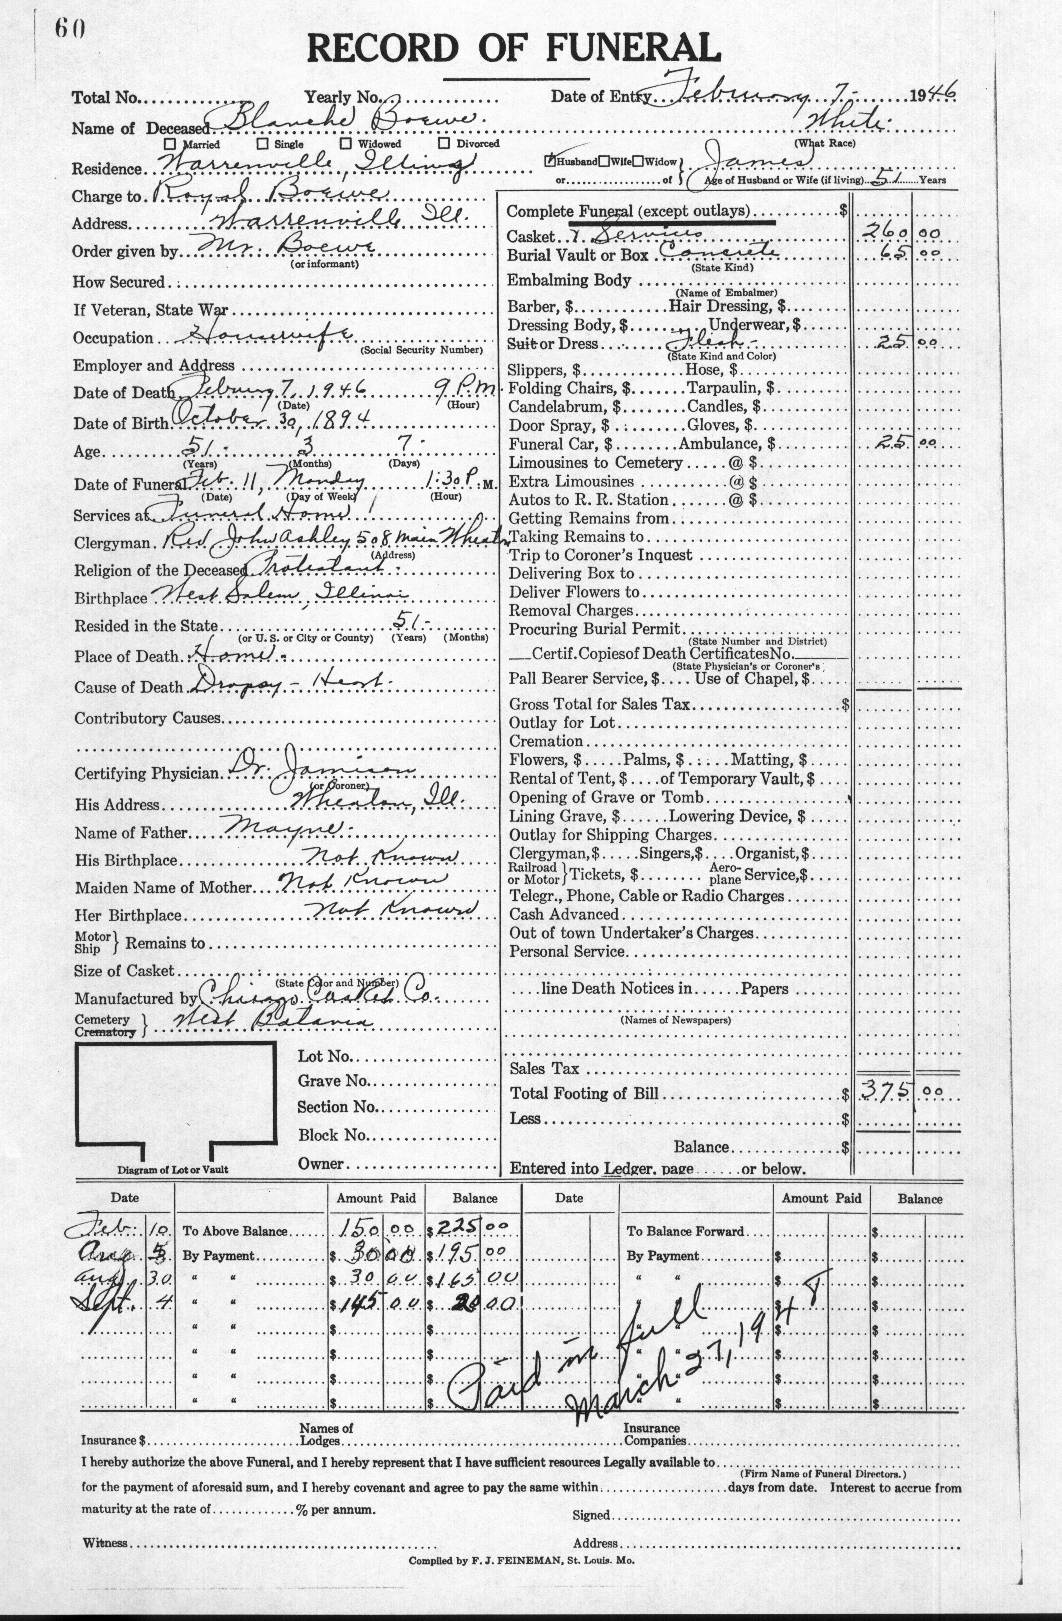 60
RECORD OF FUNERAL
Total No. Yearly No. Date of Entry February 7- 1946
Name of Deceased Blanche Boewe. White
☐ Married ☐ Single ☐ Widowed ☐ Divorced (What Race)
Residence Warrenville, Illinois ☑Husband☐Wife☐Widow} James
or of } (Age of Husband or Wife (if living) 51 Years
Charge to Royal Boewe
Address Warrenville Ill.
Order given by Mr. Boewe
(or informant)
How Secured
If Veteran, State War
Occupation Housewife
(Social Security Number)
Employer and Address
Date of Death February 7, 1946 9 P.M.
(Date) (Hour)
Date of Birth October 30, 1894
Age 51- 3 7-
(Years) (Months) (Days)
Date of Funeral Feb. 11, Monday 1:30 P.M.
(Date) (Day of Week) (Hour)
Services at Funeral Home
Clergyman Rev John Ashley 508 Main Wheaton
(Address)
Religion of the Deceased Protestant-
Birthplace West Salem, Illinois
Resided in the State 51-
(or U. S. or City or County) (Years) (Months)
Place of Death Home-
Cause of Death Dropsy - Heart-
Contributory Causes
Certifying Physician Dr. Jamison
(or Coroner)
His Address Wheaton, Ill.
Name of Father Mayne-
His Birthplace Not Known
Maiden Name of Mother Not Known
Her Birthplace Not Known
Motor Ship } Remains to
Size of Casket
(State Color and Number)
Manufactured by Chicago Casket Co.
Cemetery Crematory } West Batavia
Lot No.
Grave No.
Section No.
Block No.
Diagram of Lot or Vault Owner
Complete Funeral (except outlays) $
Casket & Services 260 00
Burial Vault or Box Concrete 65 00
(State Kind)
Embalming Body
(Name of Embalmer)
Barber, $ Hair Dressing, $
Dressing Body, $ Underwear, $
Suit or Dress Flesh- 25 00
(State Kind and Color)
Slippers, $ Hose, $
Folding Chairs, $ Tarpaulin, $
Candelabrum, $ Candles, $
Door Spray, $ Gloves, $
Funeral Car, $ Ambulance, $ 25 00
Limousines to Cemetery @ $
Extra Limousines @ $
Autos to R. R. Station @ $
Getting Remains from
Taking Remains to
Trip to Coroner's Inquest
Delivering Box to
Deliver Flowers to
Removal Charges
Procuring Burial Permit
(State Number and District)
Certif. Copies of Death Certificates No.
(State Physician's or Coroner's
Pall Bearer Service, $ Use of Chapel, $
Gross Total for Sales Tax $
Outlay for Lot
Cremation
Flowers, $ Palms, $ Matting, $
Rental of Tent, $ of Temporary Vault, $
Opening of Grave or Tomb
Lining Grave, $ Lowering Device, $
Outlay for Shipping Charges
Clergyman, $ Singers, $ Organist, $
Railroad or Motor } Tickets, $ Aeroplane Service, $
Telegr., Phone, Cable or Radio Charges
Cash Advanced
Out of town Undertaker's Charges
Personal Service
line Death Notices in Papers
(Names of Newspapers)
Sales Tax
Total Footing of Bill $ 375 00
Less $
Balance $
Entered into Ledger, page or below.
Date Amount Paid Balance Date Amount Paid Balance
Feb. 10 To Above Balance 150 00 $225 00 To Balance Forward $
Aug 5 By Payment $ 30 00 $195 00 By Payment $ $
Aug 30 " " $ 30 00 $165 00 " " $ $
Sept. 4 " " $145 00 $ 20 00 " " $ $
" " $ $ " " $ $
" " $ $ " " $ $
" " $ $ " " $ $
" " $ $ " " $ $
Paid in full
March 27, 1948
Insurance $ Names of Lodges Insurance Companies
I hereby authorize the above Funeral, and I hereby represent that I have sufficient resources Legally available to
(Firm Name of Funeral Directors.)
for the payment of aforesaid sum, and I hereby covenant and agree to pay the same within days from date. Interest to accrue from
maturity at the rate of % per annum.
Signed
Witness Address
Compiled by F. J. FEINEMAN, St. Louis. Mo.